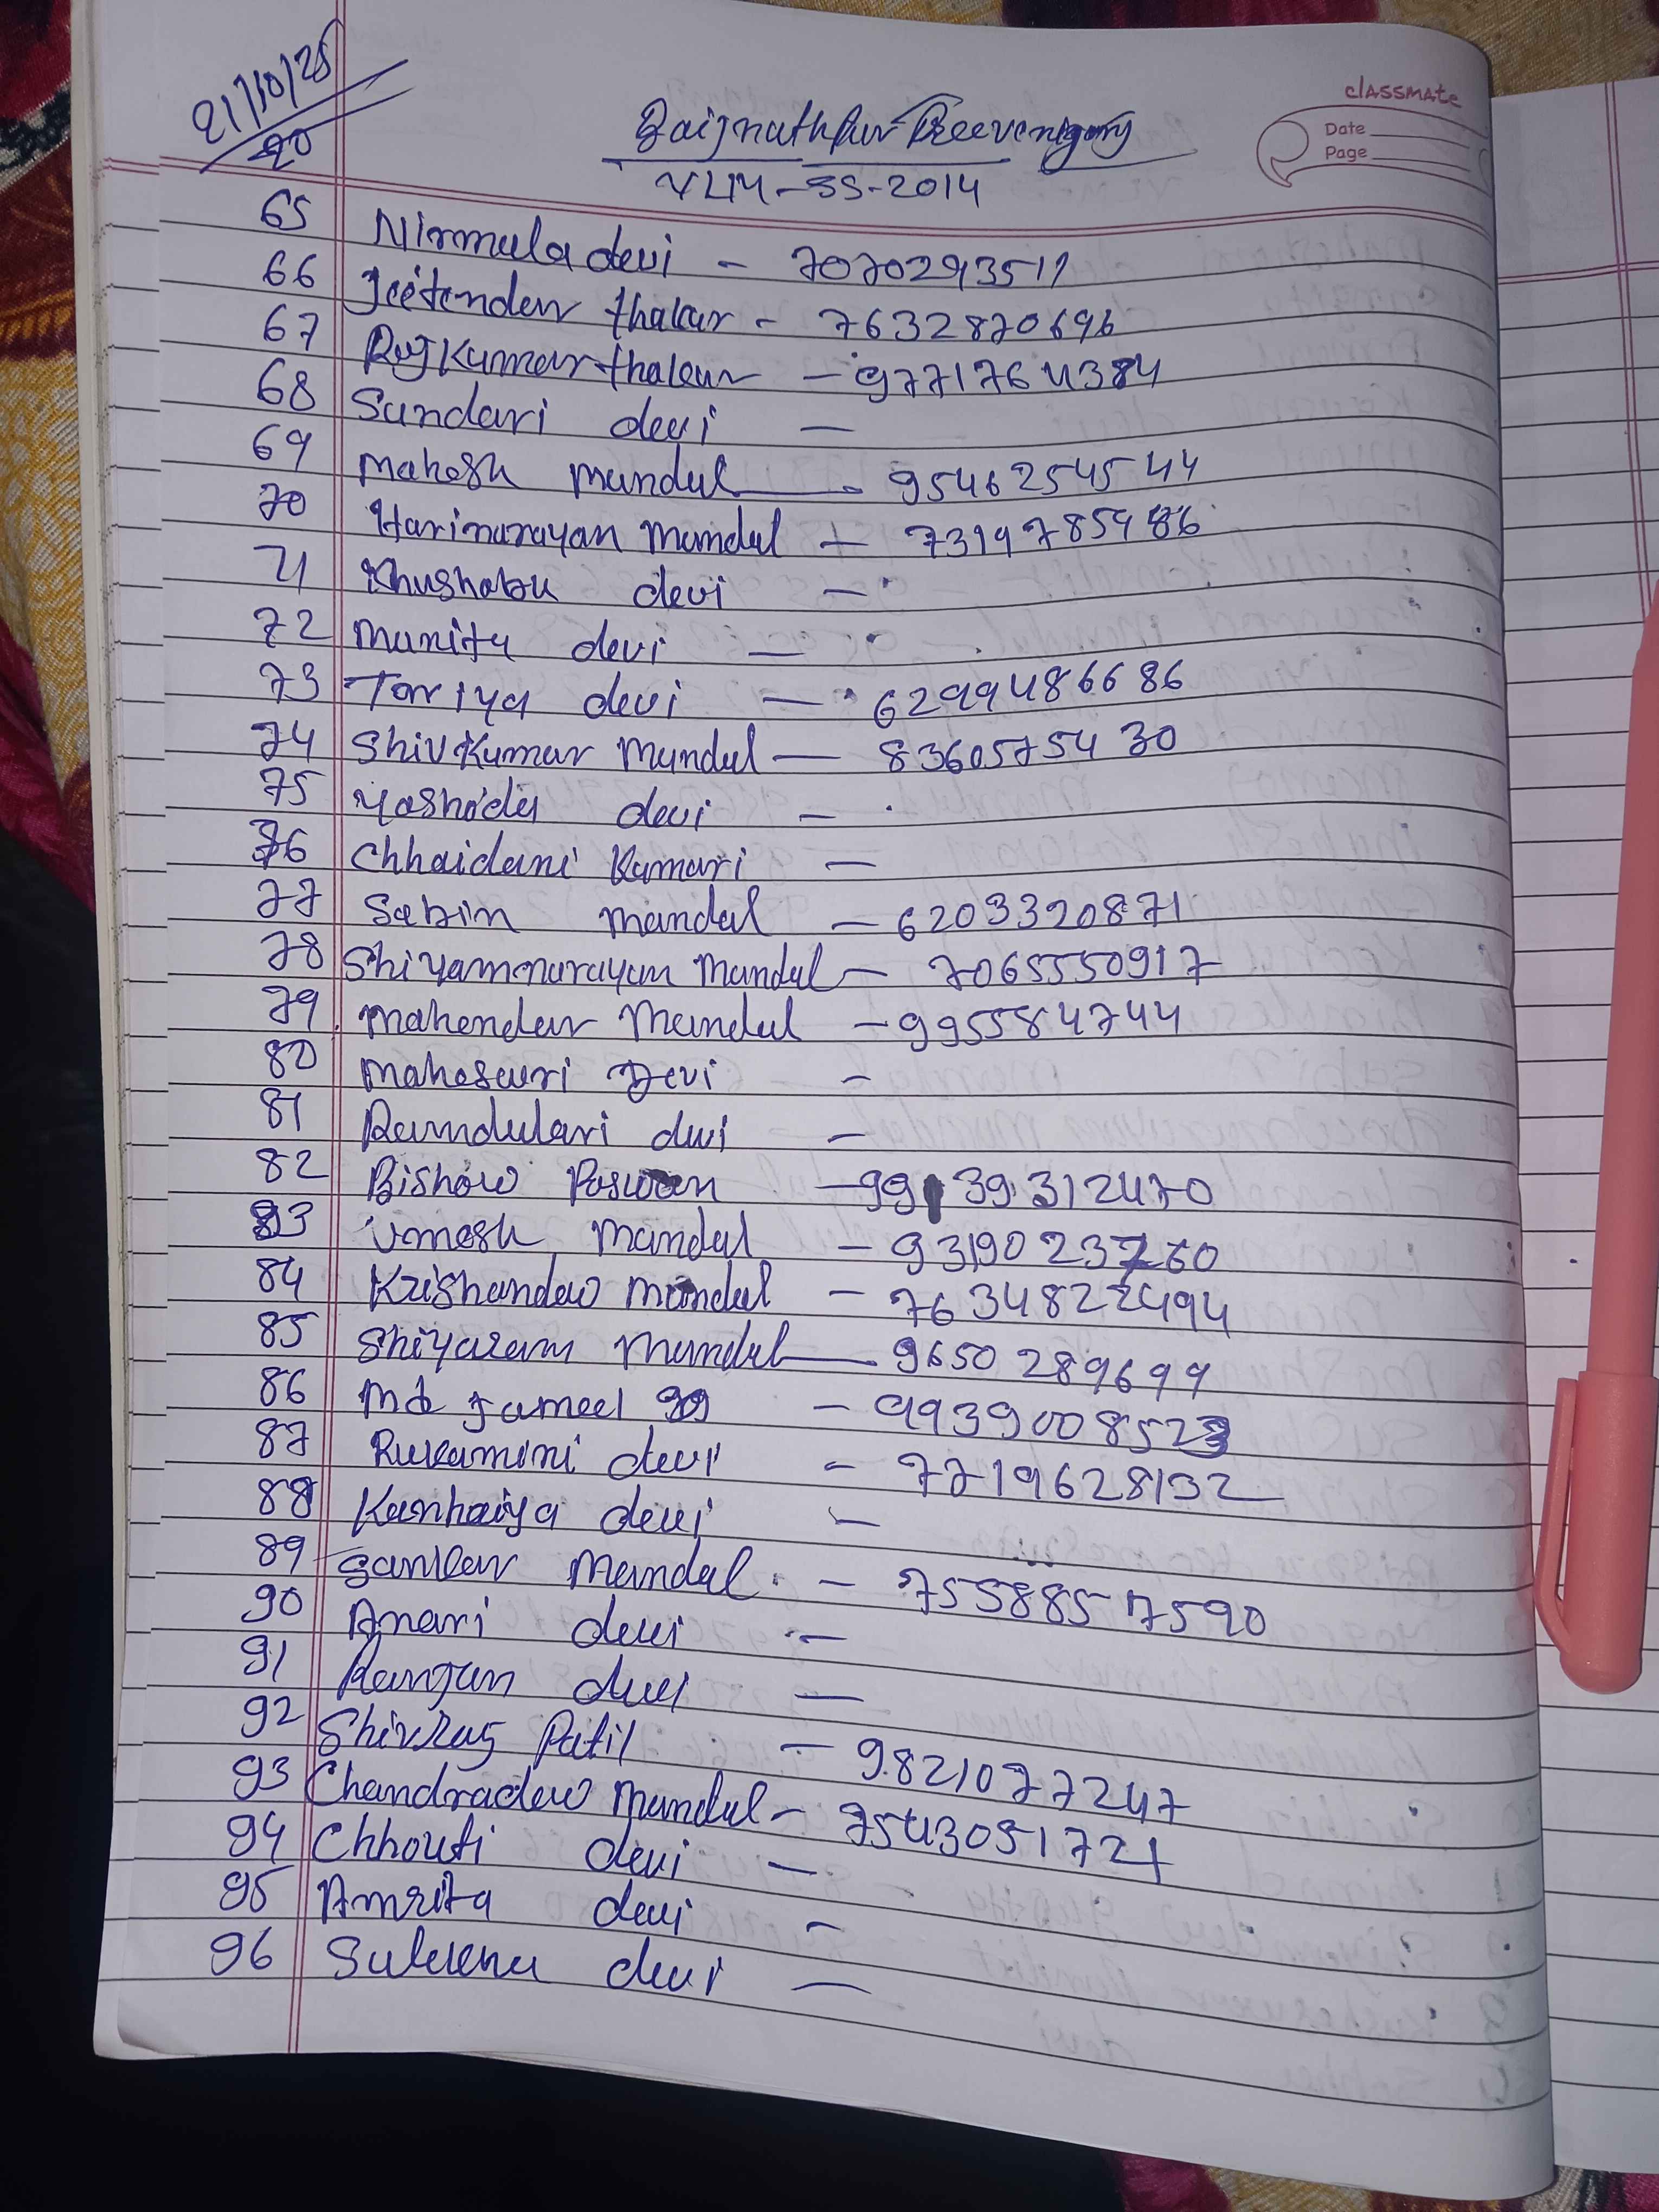 21/10/25
20
classmate
Date
Page
Baijnathpur
VLM-SS-2014
65 Nirmala devi - 7070293511
66 Jeetender thakur - 7632870696
67 Rajkumar thakur - 9771764384
68 Sundari devi -
69 Mahesh Mandal - 9546254544
70 Harinarayan Mandal - 7319785486
71 Khushabu devi -
72 Munita devi -
73 Tarriya devi - 6299486686
74 Shivkumar Mandal - 8360575430
75 Yashoda devi -
76 Chhaidani Kumari -
77 Sabin Mandal - 6203320871
78 Shiyamnarayan Mandal - 7065550917
79 Mahendar Mandal - 9955844744
80 Maheswri Devi -
81 Ramdulari devi -
82 Bishow Paswan - 99 39312470
83 Umesh Mandal - 9319023760
84 Krishandew Mandal -
85 Shiyaram Mandal - 9650289699
86 Md Jameel - 9939008523
87 Rukamini devi - 7719628132
88 Kanhaiya devi -
89 Gankar Mandal - 7558857590
90 Anari devi -
91 Ranjan devi -
92 Shivraj Patil - 9821077247
93 Chandradew Mandal - 7543051721
94 Chhouti devi -
95 Amrita devi -
96 Sulena devi -